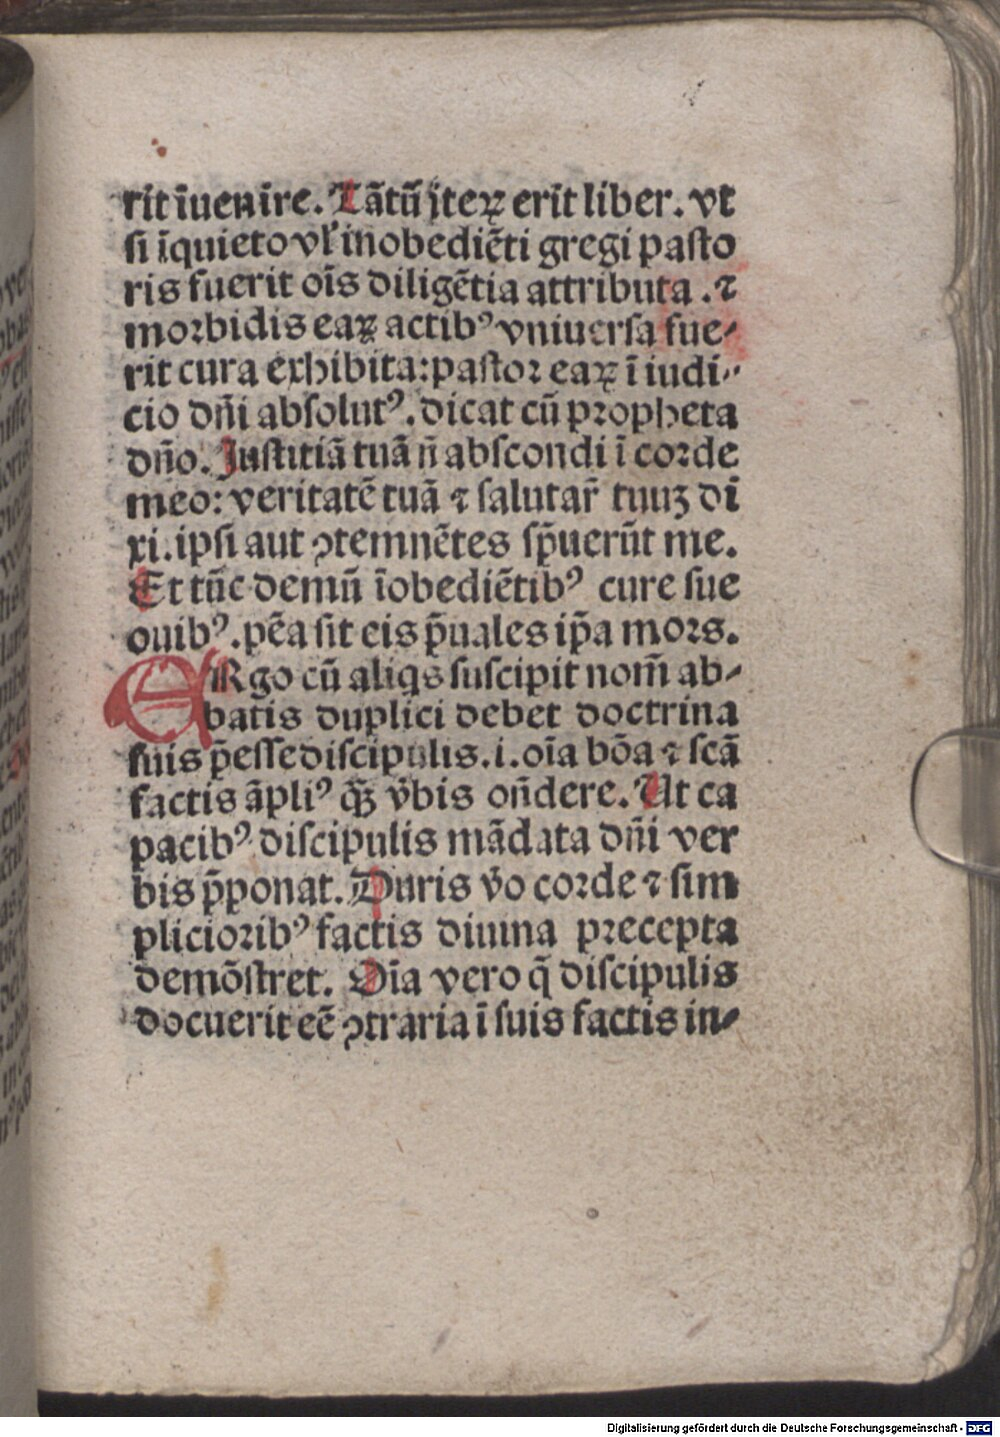 rit īuenire. Tātū iteꝝ erit liber. vt
si īquieto vł inobediēti gregi pasto
ris fuerit oīs diligētia attributa . ⁊
morbidis eaꝝ actibꝰ vniuersa fue-
rit cura exhibita: pastor eaꝝ ī iudi-
cio dn̄i absolutꝰ. dicat cū propheta
dn̄o. Justitiā tuā n̄ abscondi ī corde
meo: veritatē tuā ⁊ salutar̄ tuuꝫ di
xi. ipsi aut ꝯtemnētes sp̄uerūt me.
Et tūc demū īobediētibꝰ cure sue
ouibꝰ. pēa sit eis p̄uales ip̄a mors.
ERgo cū aliqs suscipit nom̄ ab-
batis duplici debet doctrina
suis p̄esse discipulis. i. oīa bōa ⁊ scā
factis āpliꝰ q̄ꝫ v̄bis on̄dere. Ut ca
pacibꝰ discipulis mādata dn̄i ver
bis p̄ponat. Duris v̄o corde ⁊ sim
plicioribꝰ factis diuina precepta
demōstret. Oīa vero q̄ discipulis
docuerit eē ꝯtraria ī suis factis in-
Digitalisierung gefördert durch die Deutsche Forschungsgemeinschaft - DFG